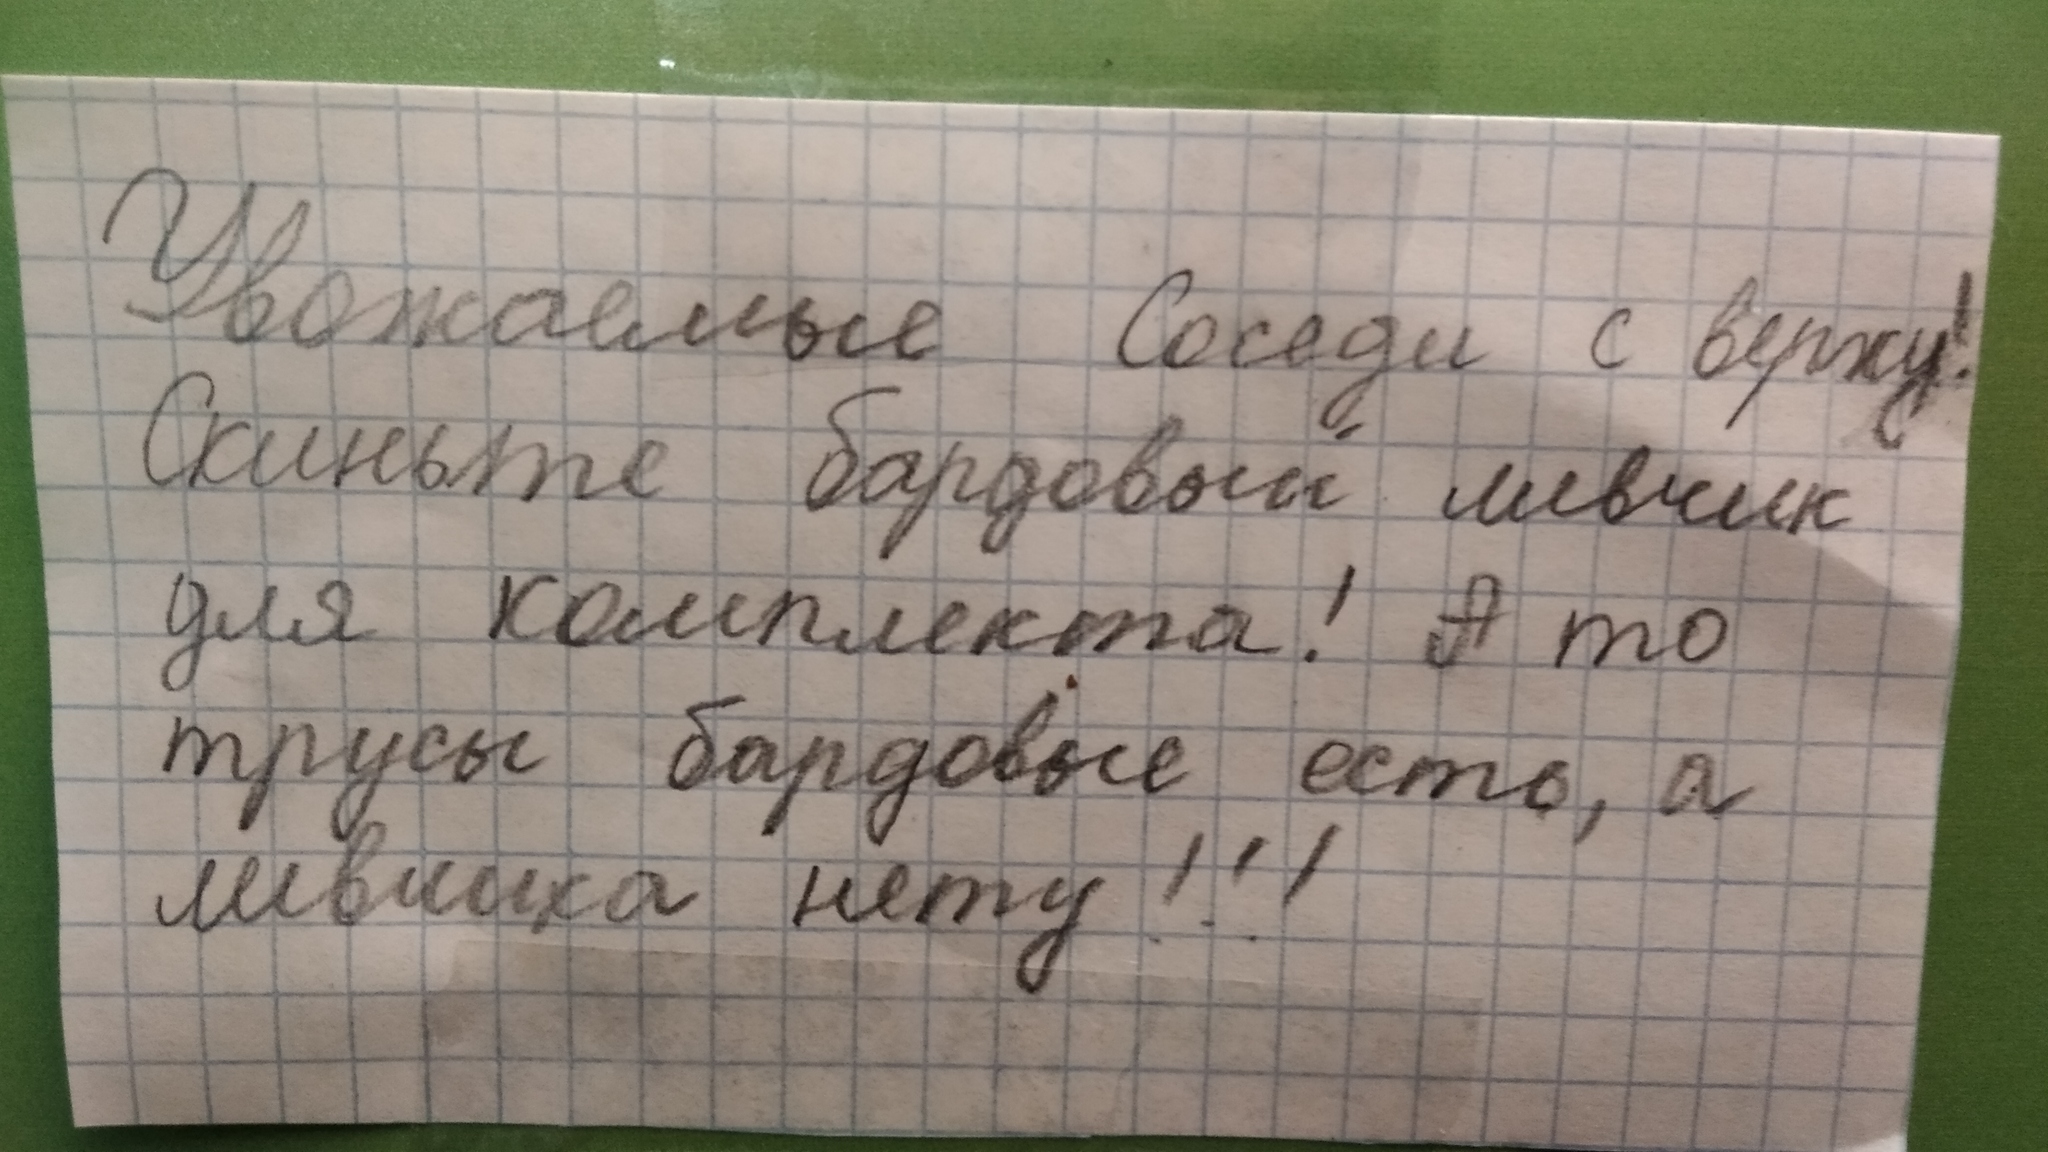 Уважаемые Соседи с верху!
Скиньте бардовый ливчик
для комплекта! А то
трусы бардовые есть, а
ливчика нету!!!